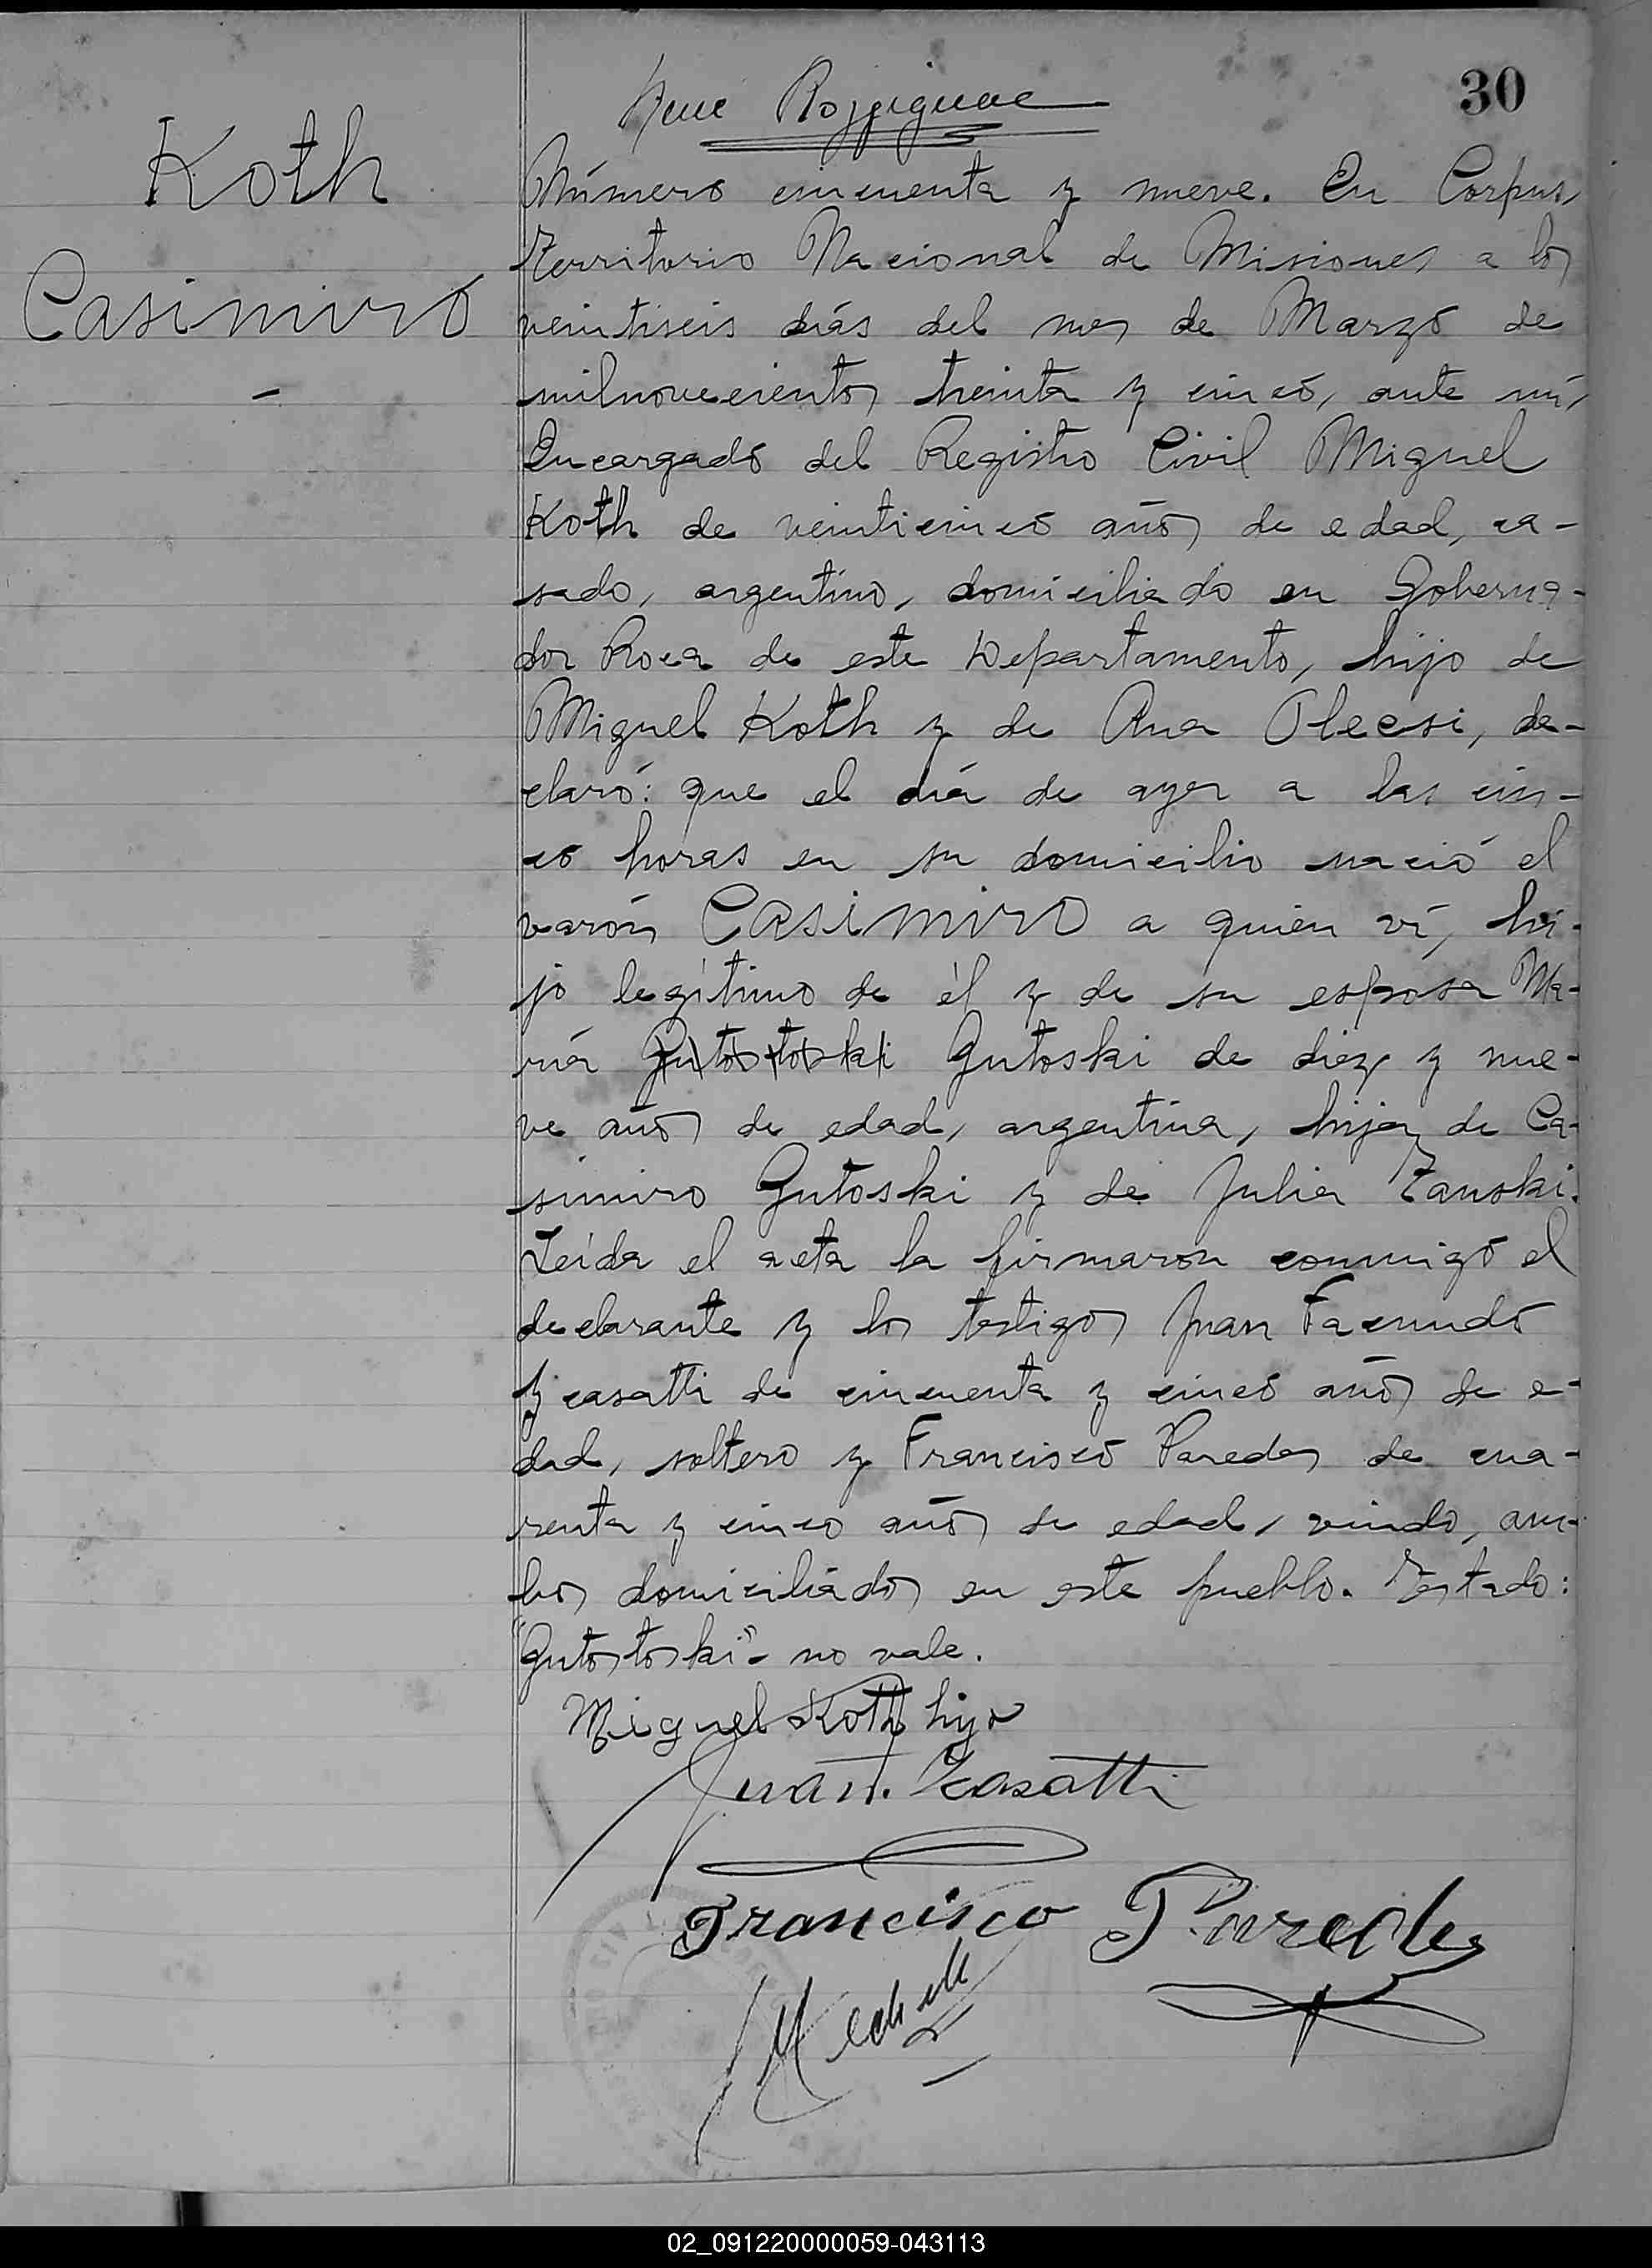 30
Koth
Casimiro
Número cincuenta y nueve. En Corpus,
Territorio Nacional de Misiones a los
veintiseis días del mes de Marzo de
milnovecientos treinta y cinco, ante mí,
Encargado del Registro Civil Miguel
Koth de veinticinco años de edad, ca-
sado, argentino, domiciliado en Goberna-
dor Roca de este Departamento, hijo de
Miguel Koth y de Ana Olecsi, de-
claró: que el día de ayer a las cin-
co horas en su domicilio nació el
varón CASIMIRO a quien ví, hi-
jo legítimo de él y de su esposa Ma-
ría Gutostoski Gutoski de diez y nue-
ve años de edad, argentina, hija de Ca-
simiro Gutoski y de Julia Zanski.
Leída el acta la firmaron conmigo el
declarante y los testigos Juan Facundo
Ycasatti de cincuenta y cinco años de e-
dad, soltero y Francisco Paredes de cua-
renta y cinco años de edad, viudo, am-
bos domiciliados en este pueblo. Testado:
"Gutostoski" - no vale.
Miguel Koth hijo
Juan. Ycasatti
Francisco Paredes
02_091220000059-043113